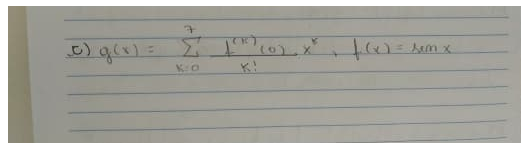 c) g(x) = \sum_{k=0}^{7} \frac{f^{(k)}(0)}{k!} x^k , f(x) = sen x